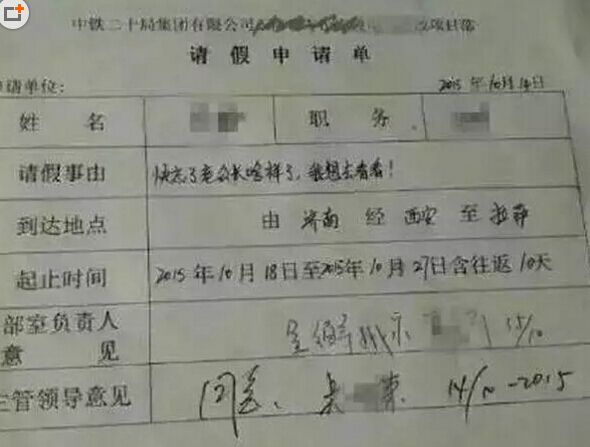 中铁二十局集团有限公司 项目部
请假申请单
申请单位： 2015年10月14日
姓名 职务
请假事由 快忘了老公长啥样了，很想去看看！
到达地点 由 济南 经 西安 至 拉萨
起止时间 2015年10月18日至2015年10月27日含往返10天
部室负责人意见 15/10
主管领导意见 同意、 14/10-2015